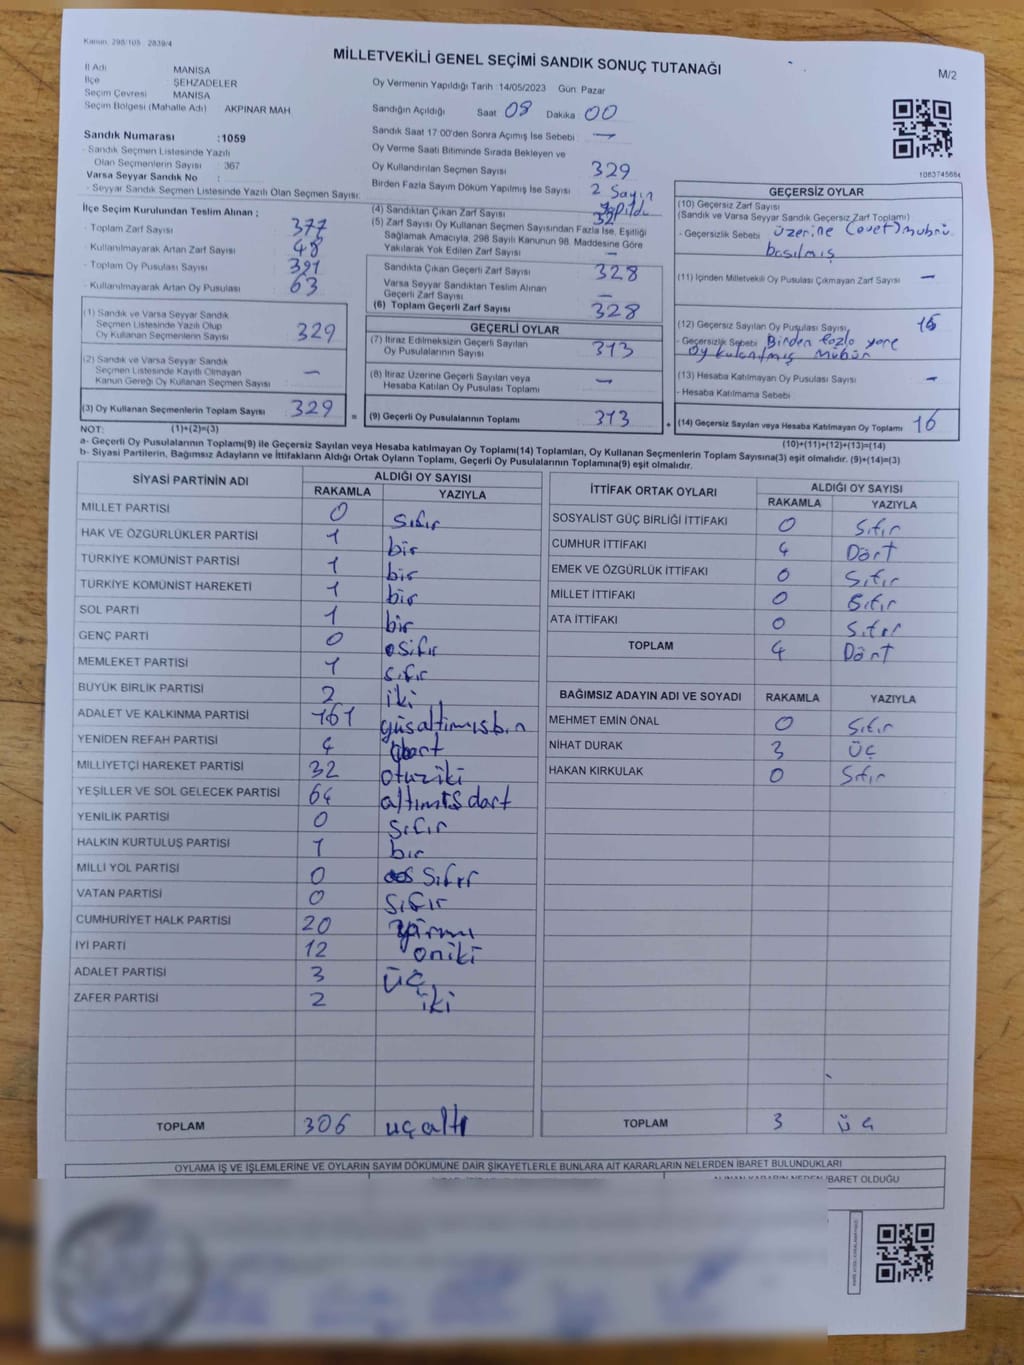 Kanun: 298/105 2839/4
MİLLETVEKİLİ GENEL SEÇİMİ SANDIK SONUÇ TUTANAĞI
M/2
İl Adı MANİSA
İlçe ŞEHZADELER
Seçim Çevresi MANİSA
Seçim Bölgesi (Mahalle Adı) AKPINAR MAH
Sandık Numarası :1059
- Sandık Seçmen Listesinde Yazılı
Olan Seçmenlerin Sayısı : 367
Varsa Seyyar Sandık No :
- Seyyar Sandık Seçmen Listesinde Yazılı Olan Seçmen Sayısı:
Oy Vermenin Yapıldığı Tarih 14/05/2023 Gün: Pazar
Sandığın Açıldığı Saat 08 Dakika 00
Sandık Saat 17:00'den Sonra Açımış İse Sebebi —
Oy Verme Saati Bitiminde Sırada Bekleyen ve
Oy Kullandırılan Seçmen Sayısı 329
Birden Fazla Sayım Döküm Yapılmış İse Sayısı 2 Sayın
yapıldı
1063745664
İlçe Seçim Kurulundan Teslim Alınan ;
- Toplam Zarf Sayısı 377
- Kullanılmayarak Artan Zarf Sayısı 48
- Toplam Oy Pusulası Sayısı 391
- Kullanılmayarak Artan Oy Pusulası 63
(1) Sandık ve Varsa Seyyar Sandık
Seçmen Listesinde Yazılı Olup
Oy Kullanan Seçmenlerin Sayısı 329
(2) Sandık ve Varsa Seyyar Sandık
Seçmen Listesinde Kayıtlı Olmayan
Kanun Gereği Oy Kullanan Seçmen Sayısı —
(3) Oy Kullanan Seçmenlerin Toplam Sayısı 329 =
(4) Sandıktan Çıkan Zarf Sayısı
(5) Zarf Sayısı Oy Kullanan Seçmen Sayısından Fazla İse, Eşitliği
Sağlamak Amacıyla, 298 Sayılı Kanunun 98. Maddesine Göre
Yakılarak Yok Edilen Zarf Sayısı —
Sandıkta Çıkan Geçerli Zarf Sayısı 328
Varsa Seyyar Sandıktan Teslim Alınan
Geçerli Zarf Sayısı —
(6) Toplam Geçerli Zarf Sayısı 328
GEÇERLİ OYLAR
(7) İtiraz Edilmeksizin Geçerli Sayılan
Oy Pusulalarının Sayısı 313
(8) İtiraz Üzerine Geçerli Sayılan veya
Hesaba Katılan Oy Pusulası Toplamı —
(9) Geçerli Oy Pusulalarının Toplamı 313 +
GEÇERSİZ OYLAR
(10) Geçersiz Zarf Sayısı
(Sandık ve Varsa Seyyar Sandık Geçersiz Zarf Toplamı)
- Geçersizlik Sebebi üzerine (evet) mührü
basılmış
(11) İçinden Milletvekili Oy Pusulası Çıkmayan Zarf Sayısı —
(12) Geçersiz Sayılan Oy Pusulası Sayısı
- Geçersizlik Sebebi Birden fazla yere
Oy kulanılmış mühür
(13) Hesaba Katılmayan Oy Pusulası Sayısı —
- Hesaba Katılmama Sebebi
(14) Geçersiz Sayılan veya Hesaba Katılmayan Oy Toplamı 16
NOT: (1)+(2)=(3)
(10)+(11)+(12)+(13)=(14)
a- Geçerli Oy Pusulalarının Toplamı(9) ile Geçersiz Sayılan veya Hesaba katılmayan Oy Toplamı(14) Toplamları, Oy Kullanan Seçmenlerin Toplam Sayısına(3) eşit olmalıdır. (9)+(14)=(3)
b- Siyasi Partilerin, Bağımsız Adayların ve İttifakların Aldığı Ortak Oyların Toplamı, Geçerli Oy Pusulalarının Toplamına(9) eşit olmalıdır.
SİYASİ PARTİNİN ADI ALDIĞI OY SAYISI
RAKAMLA YAZIYLA
MİLLET PARTİSİ 0 Sıfır
HAK VE ÖZGÜRLÜKLER PARTİSİ 1 bir
TÜRKİYE KOMÜNİST PARTİSİ 1 bir
TÜRKİYE KOMÜNİST HAREKETİ 1 bir
SOL PARTİ 1 bir
GENÇ PARTİ 0 Sıfır
MEMLEKET PARTİSİ 1 sıfır
BÜYÜK BİRLİK PARTİSİ 2 iki
ADALET VE KALKINMA PARTİSİ 161 yüsaltımışbin
YENİDEN REFAH PARTİSİ 4
MİLLİYETÇİ HAREKET PARTİSİ 32 otuziki
YEŞİLLER VE SOL GELECEK PARTİSİ 64 altımışdört
YENİLİK PARTİSİ 0 Sıfır
HALKIN KURTULUŞ PARTİSİ 1 bir
MİLLİ YOL PARTİSİ 0 Sıfır
VATAN PARTİSİ 0 Sıfır
CUMHURİYET HALK PARTİSİ 20 yirmi
İYİ PARTİ 12 oniki
ADALET PARTİSİ 3 üç
ZAFER PARTİSİ 2 iki
TOPLAM 306 uçaltı
İTTİFAK ORTAK OYLARI ALDIĞI OY SAYISI
RAKAMLA YAZIYLA
SOSYALİST GÜÇ BİRLİĞİ İTTİFAKI 0 Sıfır
CUMHUR İTTİFAKI 4 Dört
EMEK VE ÖZGÜRLÜK İTTİFAKI 0 Sıfır
MİLLET İTTİFAKI 0 Sıfır
ATA İTTİFAKI 0 Sıfır
TOPLAM 4 Dört
BAĞIMSIZ ADAYIN ADI VE SOYADI RAKAMLA YAZIYLA
MEHMET EMİN ÖNAL 0 Sıfır
NİHAT DURAK 3 üç
HAKAN KIRKULAK 0 Sıfır
TOPLAM 3 üç
OYLAMA İŞ VE İŞLEMLERİNE VE OYLARIN SAYIM DÖKÜMÜNE DAİR ŞİKAYETLERLE BUNLARA AİT KARARLARIN NELERDEN İBARET BULUNDUKLARI
İBARET OLDUĞU